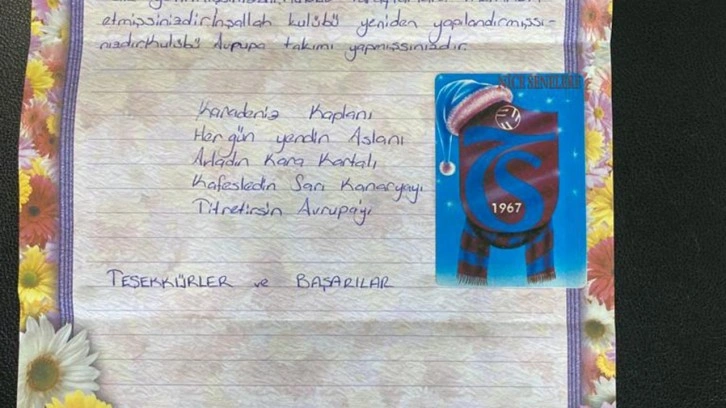 etmişsinizdir.İnşallah kulübü yeniden yapılandırmışsı-
nızdır.Kulübü Avrupa takımı yapmışsınızdır.
Karadeniz Kaplanı
Her gün yendin Aslanı
Avladın Kara Kartalı
Kafesledin Sarı Kanaryayı
Titretirsin Avrupa'yı
NİCE SENELERE
TS
1967
TEŞEKKÜRLER ve BAŞARILAR